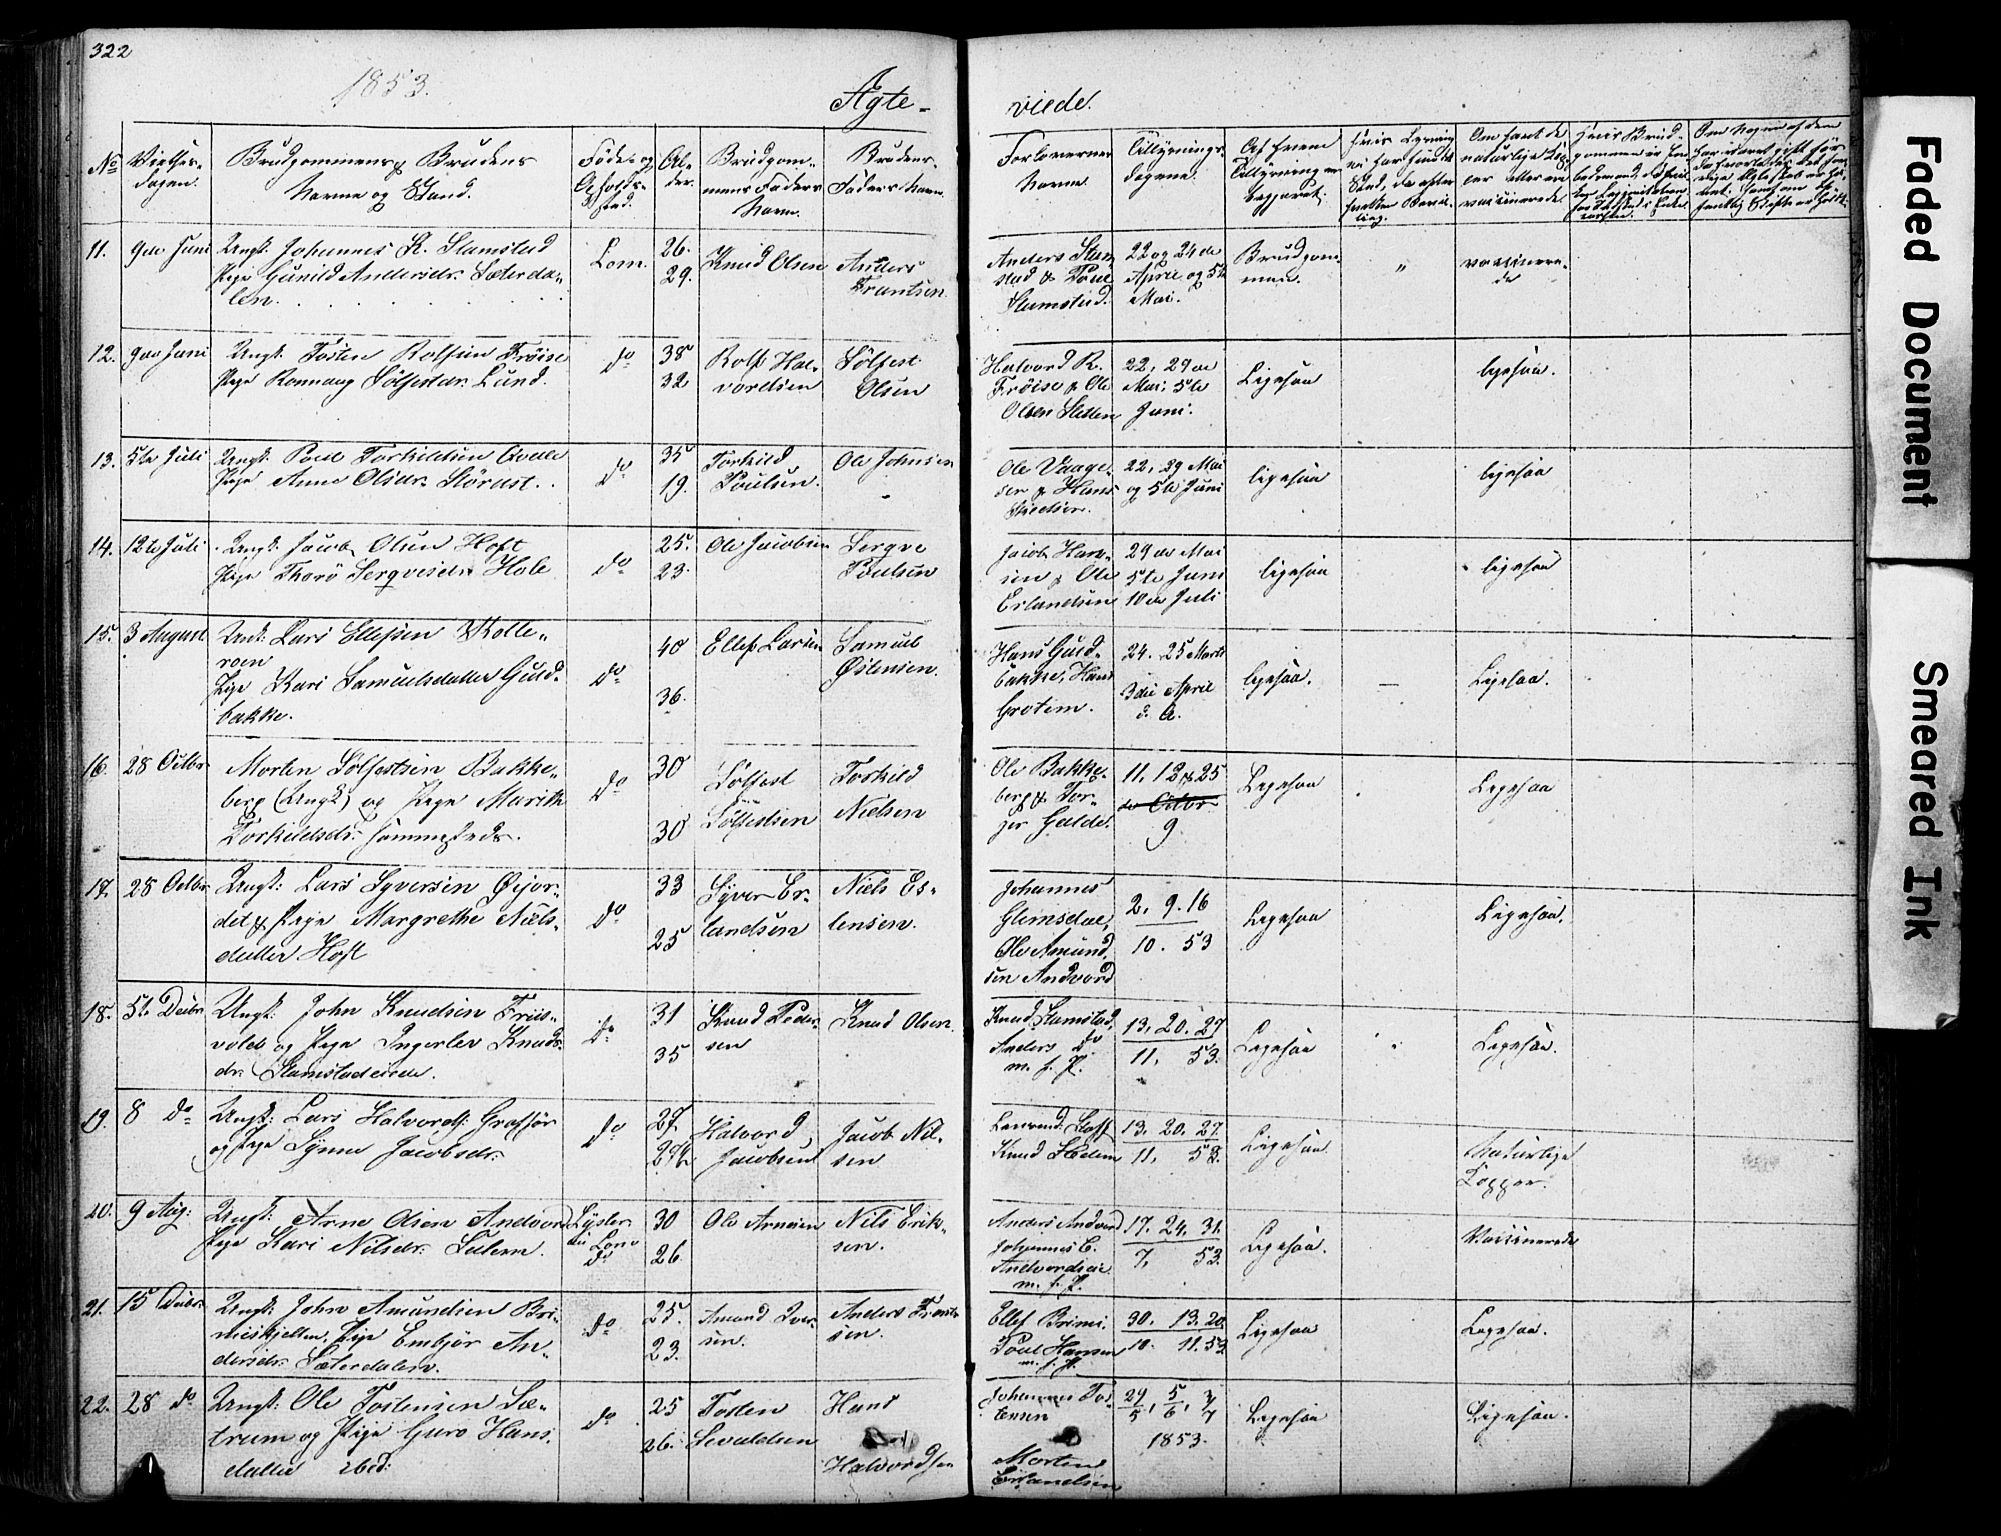 322
1853.
Ægte-
viede.
No
Vielses-
dagen.
Brudgommens & Brudens
Navne og Stand.
Føde- og
Opholds-
sted.
Al-
der.
Brudgom-
mens Faders
Navn.
Brudens
Faders Navn.
Forlovernes
Navne.
Tillysnings-
dagene.
Af hvem
Tillysning er
begjæret.
Om havt de
naturlige Kop-
per eller ere
vaccinerede.
11. 9de Juni Ungk: Johannes K. Slamstad
Pige Gunild Andersdr. Sæterda-
len.
Lom.
26.
29.
Knud Olsen
Anders
Frantsen
Anders Slam-
stad & Poul
Slamstad.
22 og 24de
April og 5te
Mai.
Brudgom-
men.
"
vaccinere-
de
12. 9de Juni Ungk: Tosten Rolfsen Frøise
Pige Rønnaug Sølfestdr. Lund.
do
38
32
Rolf Hal-
vordsen
Sølfest
Olsen
Halvord R.
Frøise & Ole
Olsen Sletten
22, 29de
Mai, 5te
Juni.
Ligesaa
ligesaa.
13. 5te Juli Ungk: Poul Torkildsen Qvale
Pige Anne Olsdr. Sørdst.
do
35
19.
Torkild
Poulsen.
Ole Johnsen
Ole Vaage-
22, 29 Mai
og 5te Juni
ligesaa
ligesaa
14. 12te Juli Ungk: Jacob Olsen Hoft
Pige Thorø Sergvesdr. Hole
do
25.
23.
Ole Jacobsen
Sergve
Poulsen
Jacob Han-
sen & Ole
Erlandsen
29de Mai
5te Juni
10de Juli
ligesaa
ligesaa
15. 3 August Ungk: Lars Ellefsen
roen
Pige Kari Samuelsdatter Guld-
bakke.
do
40
36.
Ellef Larsen
Samuel
Østensen.
Hans Guld-
bakke, Hans
Grotem.
24. 25 Marts
3die April
d. A.
ligesaa.
—
Ligesaa.
16. 28 Octbr Morten Sølfestsen Bakke-
berg (Ungk) og Pige Marith
Torkildsdr.
do
30
30
Sølfest
Sølfestsen
Torkild
Nielsen
Ole Bakke-
berg & Tor-
ger Galde.
11, 12 & 25
de Octbr
9
Ligesaa
Ligesaa
17. 28 Octbr Ungk: Lars Syversen Øijor-
det & Pige Margrethe Niels-
datter Hoft
do
33
25
Syver Er-
landsen
Niels Es-
lensen.
Johannes
Glimsdal,
Ole Amund-
sen Andvord
2, 9. 16
10. 53
Ligesaa
Ligesaa.
18. 5te Decbr Ungk: John Knudsen Friis-
vold og Pige Ingerlev Knuds-
dr. Slamstadeide.
do
31
35
Knud Peder-
sen
Knud Olsen
Knud Slamstad,
Anders do
m. f. P.
13, 20. 27
11, 53.
Ligesaa
Ligesaa.
19. 8 do Ungk: Lars Halvords: Graffør
og Pige Synne Jacobsdr.
do
27
Halvord
Jacobsen
Jacob Nil-
sen
13. 20. 27.
11, 53.
Ligesaa.
Naturlige
Kopper.
20. 9 Aug: Ungk: Arne Olsen Andvord
Pige Kari Nilsdr. Sulem.
Lyster
Lom
do
30
26.
Ole Arnesen
Nils Erik-
sen.
Anders Andvord
Johannes E.
Andvordseie
m. f. P.
17. 24. 31.
7, 53.
Ligesaa.
Vaccinerede
21. 15 Decbr. Ungk: John Amundsen Bri-
miskjellen, Pige Embjør An-
dersdr. Sæterdalen.
do
25.
23.
Amund Iver-
sen.
Anders Frant-
sen.
Ellef Brimi.
Poul Hansen
m. f. P.
30. 13. 20.
10. 11. 53
Ligesaa
Ligesaa.
22. 28 do Ungk: Ole Tostensen Sæ-
trum og Pige Guro Hans-
datter ibid:
do
25
26.
Tosten
Sevaldsen
Hans
Halvordsen
Johannes To-
stensen
Morten
Erlandsen
29/5, 5/6, 3/7
1853.
Ligesaa
Ligesaa.
Faded Document
Smeared Ink